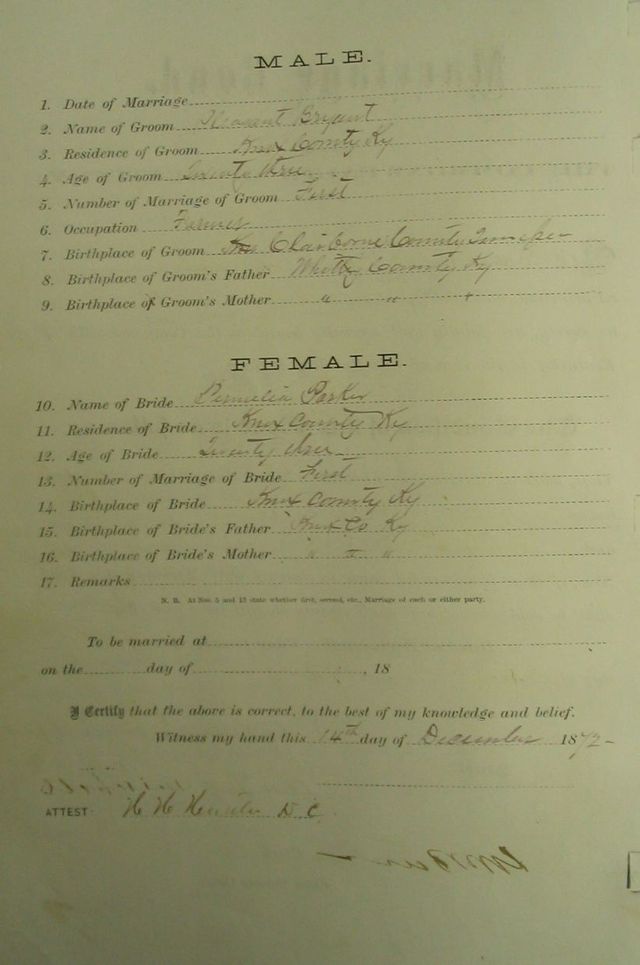 MALE.
1. Date of Marriage
2. Name of Groom Pleasant Bryant
3. Residence of Groom Knox County Ky
4. Age of Groom Twenty three
5. Number of Marriage of Groom First
6. Occupation Farmer
7. Birthplace of Groom Claiborne County
8. Birthplace of Groom's Father Whitley County Ky
9. Birthplace of Groom's Mother " " "
FEMALE.
10. Name of Bride Permelia Parker
11. Residence of Bride Knox County Ky
12. Age of Bride Twenty three
13. Number of Marriage of Bride First
14. Birthplace of Bride Knox County Ky
15. Birthplace of Bride's Father Knox Co Ky
16. Birthplace of Bride's Mother " " "
17. Remarks
N. B. At Nos. 5 and 13 state whether first, second, etc., Marriage of each or either party.
To be married at
on the day of , 18
I Certify that the above is correct, to the best of my knowledge and belief.
Witness my hand this 14th day of December 1872
ATTEST: H H D C